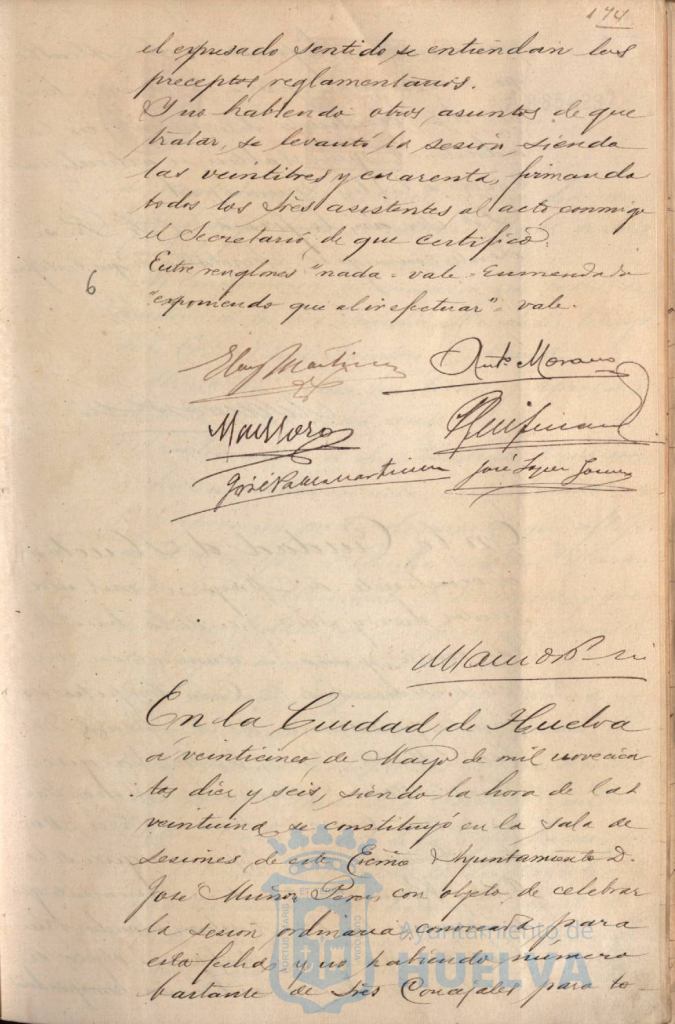 174
el expresado sentido se entiendan los
preceptos reglamentarios.
Y no habiendo otros asuntos de que
tratar, se levantó la sesión siendo
las veintitres y cuarenta, firmando
todos los Sres asistentes al acto conmigo
el Secretario, de que certifico.
Entre renglones "nada - vale - Enmendado
"exponiendo que al ir efectuar" - vale.
6
Eloy Martinez Anto Moreno
José Palma Martinez José Lopez Gomez
En la Ciudad de Huelva
á veinticinco de Mayo de mil novecien
tos diez y seis, siendo la hora de las
veintiuna se constituyó en la Sala de
Sesiones de este Excmo Ayuntamiento D.
José Muñoz Perez con objeto de celebrar
la sesión ordinaria convocada para
esta fecha, y no habiendo número
bastante de Sres Concejales para to-
Ayuntamiento de
HUELVA